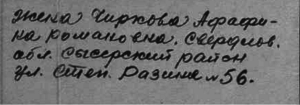 жена Чиркова Афафи-
на романовна. Свердлов.
обл. Сысерский район
ул. Степ. Разина № 56.